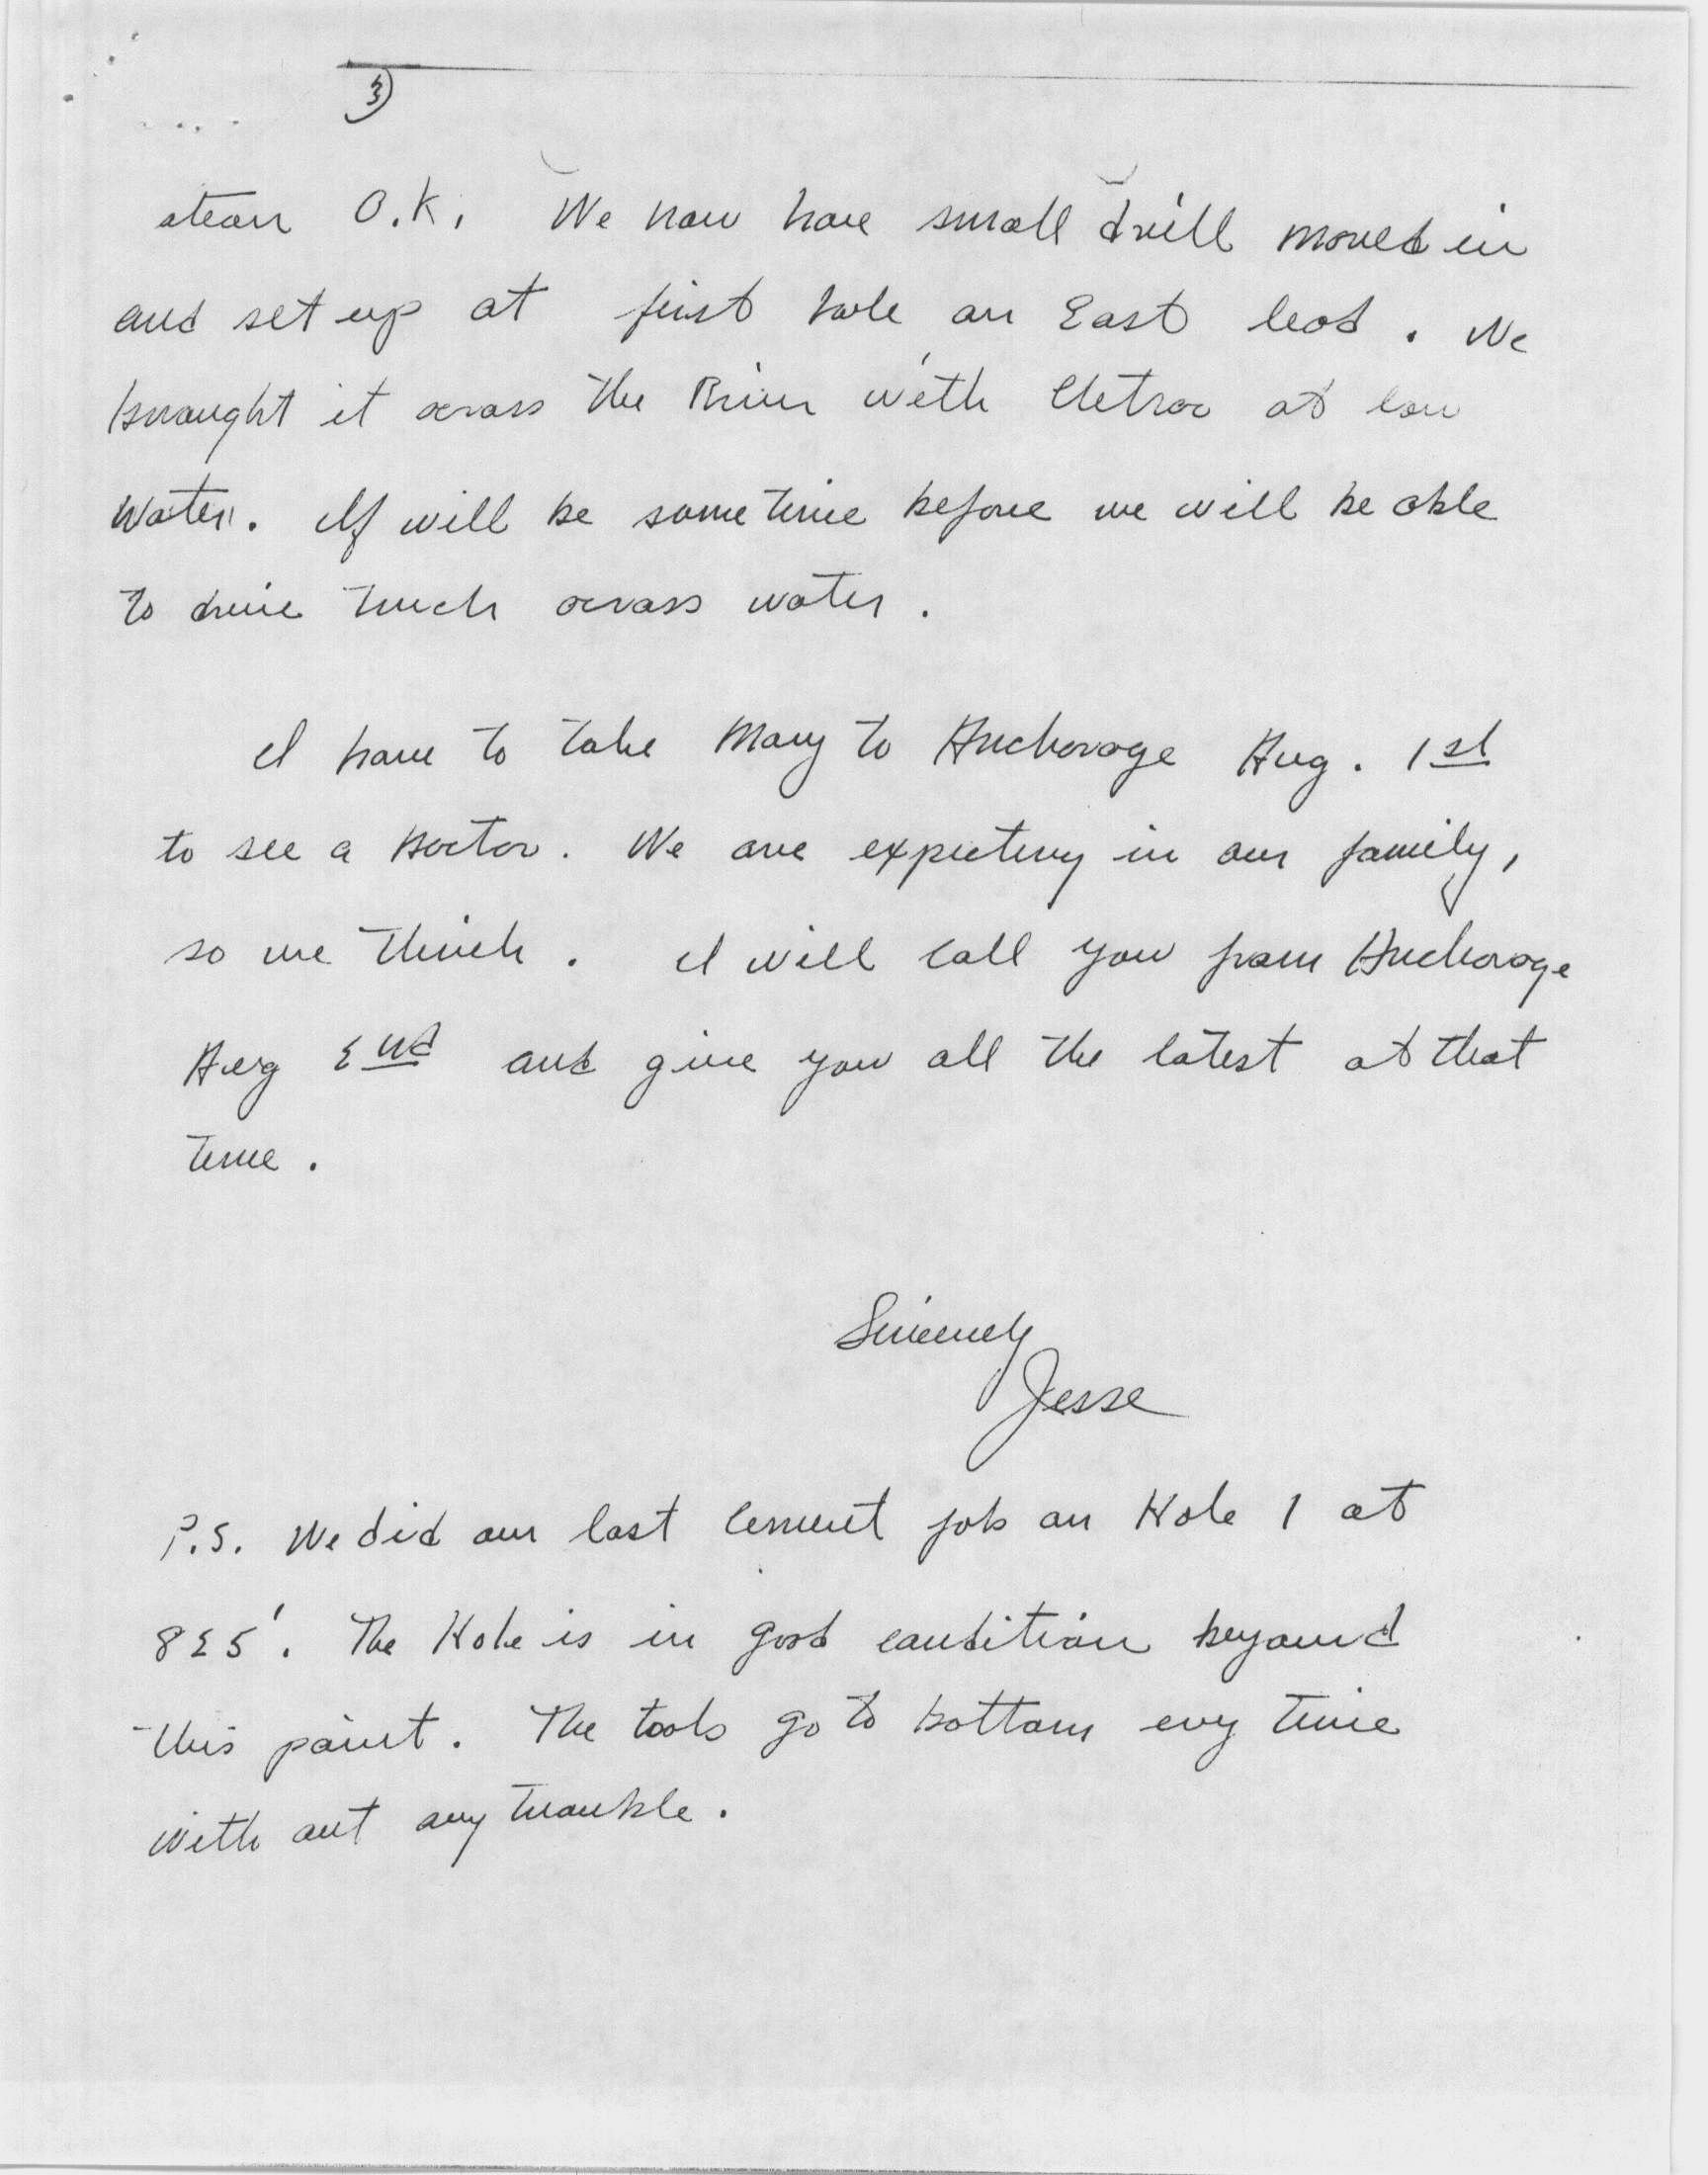 3)
steam O.K. We now have small drill moved in
and set up at first hole on East lead. We
brought it across the River with Cletrac at low
Water. It will be sometime before we will be able
to drive truck across water.
I have to take Mary to Anchorage Aug. 1st
to see a Doctor. We are expecting in our family,
so we think. I will call you from Anchorage
Aug 2nd and give you all the latest at that
time.
Sincerely
Jesse
P.S. We did our last cement job on Hole 1 at
825'. The Hole is in good condition beyound
this point. The tools go to bottom evy time
with out any trouble.